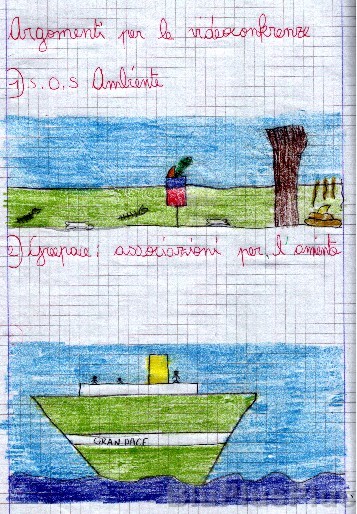 Argomenti per le videoconferenze
1) S.O.S Ambiente
2) Greepaice: associazioni per l'amiente
GRAN PACE